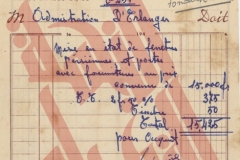 M Administration D'Etranger Doit
Mise en état de fenêtres
persiennes et portes
avec fournitures au prix
comme de 15.000frs
T.T. 2/50 % 375
Timbre 50
Total 15.425
pour acquit